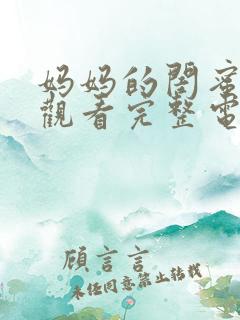 妈妈的閤蜜
觀看完整電
顾言言
未经同意禁止转载